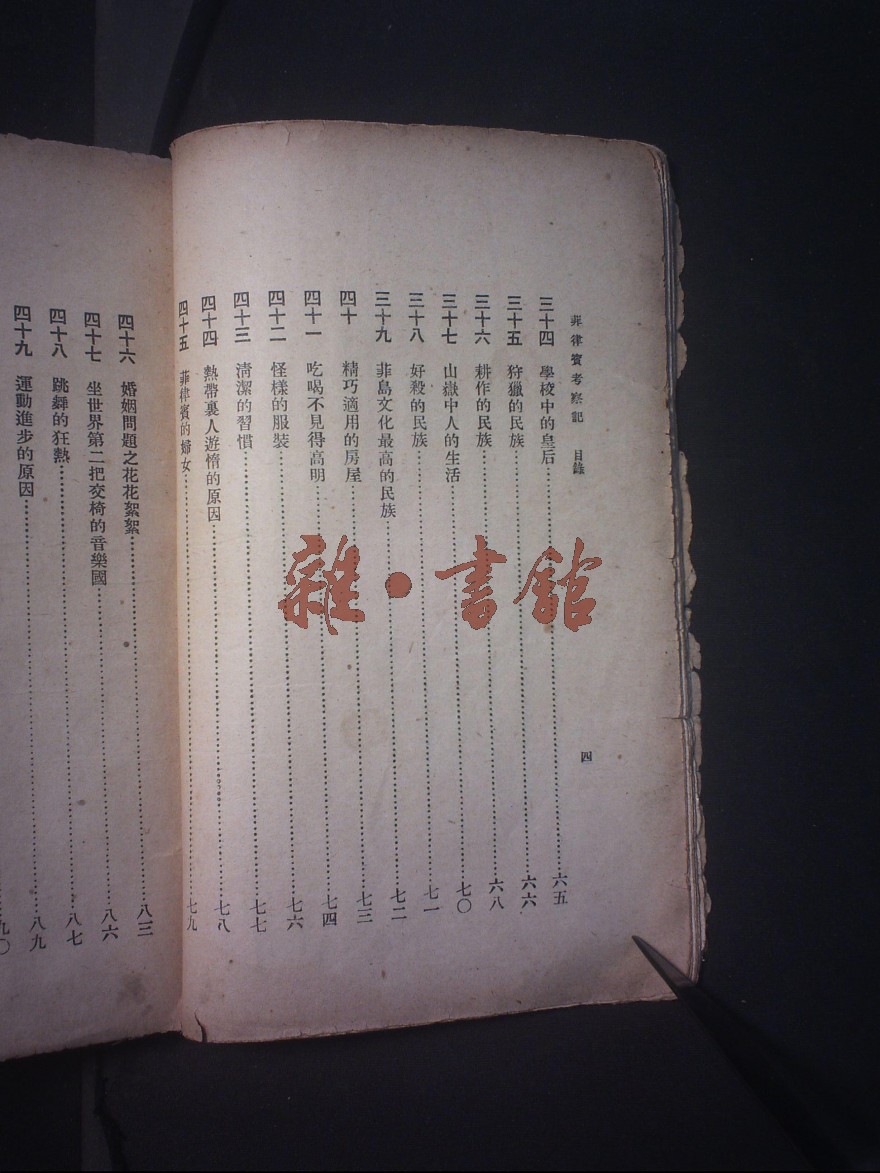 菲律賓考察記 目錄
四
三十四 學校中的皇后 六五
三十五 狩獵的民族 六六
三十六 耕作的民族 六八
三十七 山嶽中人的生活 七〇
三十八 好殺的民族 七一
三十九 菲島文化最高的民族 七二
四十 精巧適用的房屋 七三
四十一 吃喝不見得高明 七四
四十二 怪樣的服裝 七六
四十三 清潔的習慣 七七
四十四 熱帶裏人遊惰的原因 七八
四十五 菲律賓的婦女 七九
四十六 婚姻問題之花花絮絮 八三
四十七 坐世界第二把交椅的音樂國 八六
四十八 跳舞的狂熱 八七
四十九 運動進步的原因 八九
九〇
雜·書館